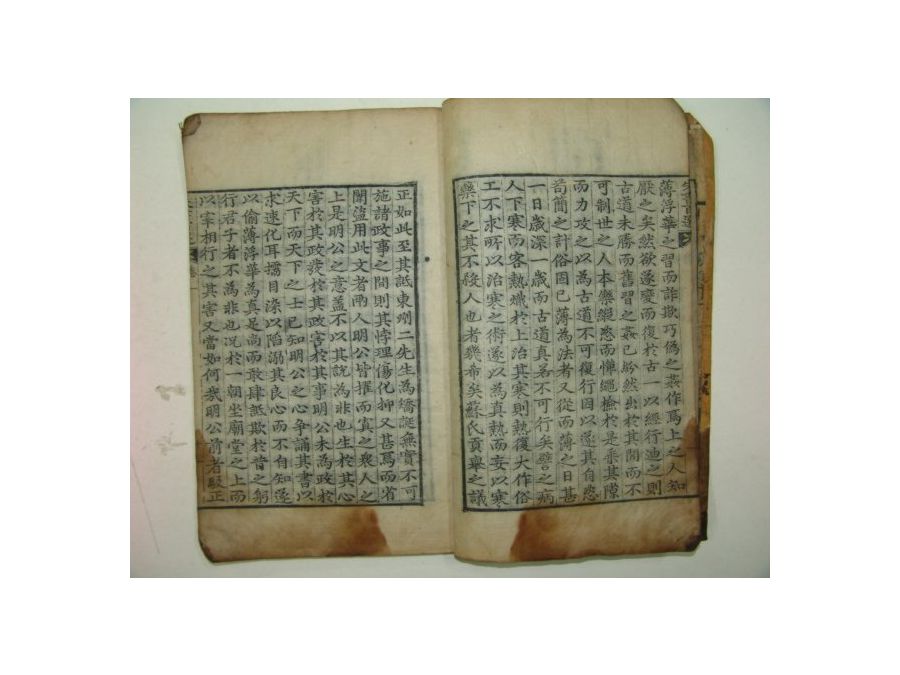 薄浮華之習而詐欺巧偽之姦作焉上之人知
厭之矣然欲遂棄而復於古一以經行迪之則
古道未勝而舊習之姦已紛然出於其間而不
可制世之人本樂縱恣而憚繩檢於是乎其隙
而力攻之以為古道不可復行因以遂其自恣
苟簡之計俗固已薄為法者又從而薄之日甚
一日歲深一歲而古道真若不可行矣譬之病
人下寒而客熱熾於上治其寒則熱復大作俗
工不求所以治寒之術遂以為真熱而妄以寒
藥下之其不殺人也者幾希矣蘇氏貢舉之議
正如此至其詆東州二先生為矯誕無實不可
施諸政事之間則其悖理傷化抑又甚焉而省
闈盜用此文者兩人明公皆擢而寘之衆人之
上是明公之意盖不以其說為非也生於其心
害於其政發於其政害於其事明公未為政於
天下而天下之士已知明公之心爭誦其書以
求速化耳擩目染以陷溺其良心而不自知遂
以偷薄浮華為真是尚而敢肆詆欺於昔之躬
行君子者不為非也况於一朝坐廟堂之上而
以宰相行之其害又當如何哉明公前者駁正